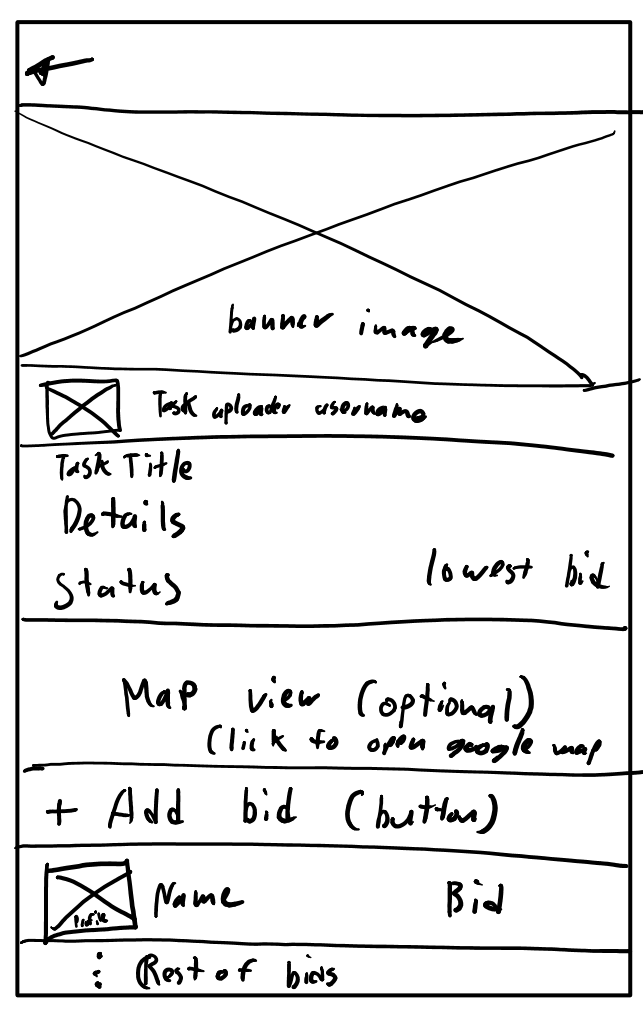 banner image
Task uploader username
Task Title
Details
Status
lowest bid
Map view (optional)
Click to open google map
+ Add bid (button)
Profile
Name
Bid
⋮ Rest of bids